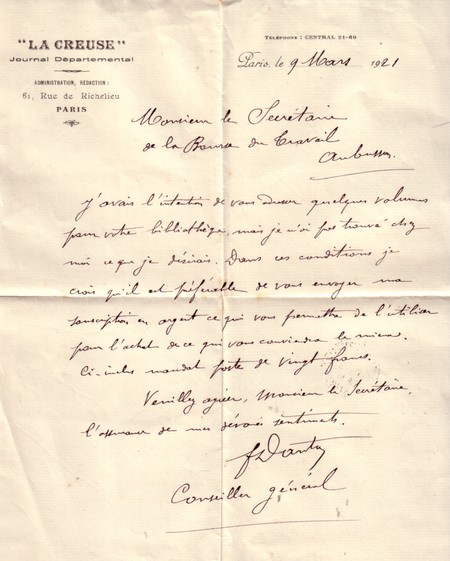 "LA CREUSE"
Journal Départemental
ADMINISTRATION, RÉDACTION :
61, Rue de Richelieu
PARIS
TÉLÉPHONE : CENTRAL 21-69
Paris, le 9 Mars 1921
Monsieur le Secrétaire
de la Bourse du Travail
Aubusson.
J'avais l'intention de vous adresser quelques volumes
pour votre bibliothèque, mais je n'ai pas trouvé chez
moi ce que je désirais. Dans ces conditions je
crois qu'il est préférable de vous envoyer ma
souscription en argent ce qui vous permettra de l'utiliser
pour l'achat de ce qui vous conviendra le mieux.
Ci-inclus mandat poste de vingt francs.
Veuillez agréer, Monsieur le Secrétaire,
l'assurance de mes dévoués sentiments.
Conseiller général